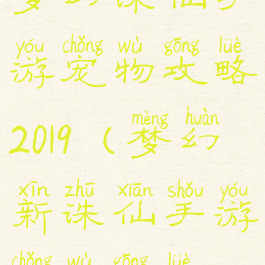 梦幻诛仙手
yóu chǒng wù gōng lüè
游宠物攻略
mèng huàn
2019（梦幻
xīn zhū xiān shǒu yóu
新诛仙手游
chǒng wù gōng lüè